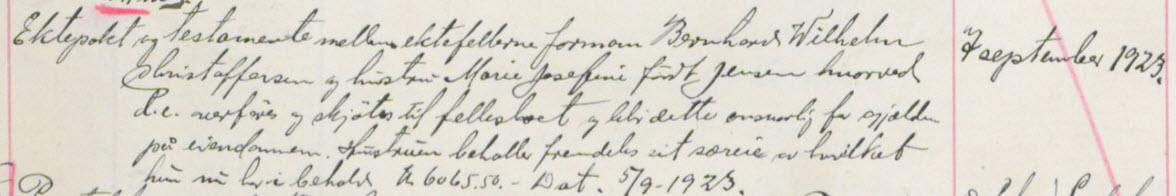 Ektepakt og testamente mellem ektefellerne formann Bernhard Wilhelm
Christoffersen og hustru Marie Josefine født Jensen hvorved
d.e. overføres og skjøtes til fellesboet og blir dette ansvarlig for gjælden
på eiendommen. Hustruen beholler fremdeles sit særeie av hvilket
hun nu har i behold kr 6065.50.- Dat. 5/9-1923.
7 september 1923.